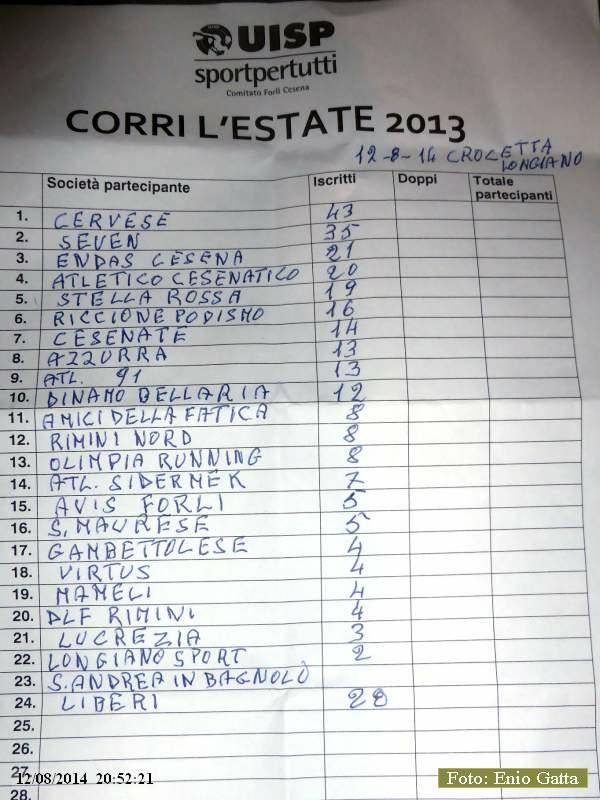 UISP
sportpertutti
Comitato Forlì Cesena
CORRI L'ESTATE 2013
12-8-14 CROCETTA
LONGIANO
Società partecipante Iscritti Doppi Totale partecipanti
1. CERVESE 43
2. SEVEN 35
3. ENDAS CESENA 21
4. ATLETICO CESENATICO 20
5. STELLA ROSSA 19
6. RICCIONE PODISMO 16
7. CESENATE 14
8. AZZURRA 13
9. ATL. 91 13
10. DINAMO BELLARIA 12
11. AMICI DELLA FATICA 8
12. RIMINI NORD 8
13. OLIMPIA RUNNING 8
14. ATL. SIDERMEK 7
15. AVIS FORLI 5
16. S. MAURESE 5
17. GAMBETTOLESE 4
18. VIRTUS 4
19. MAMELI 4
20. DLF RIMINI 4
21. LUCREZIA 3
22. LONGIANO SPORT 2
23. S. ANDREA IN BAGNOLO
24. LIBERI 28
25.
26.
27.
12/08/2014 20:52:21
Foto: Enio Gatta
28.